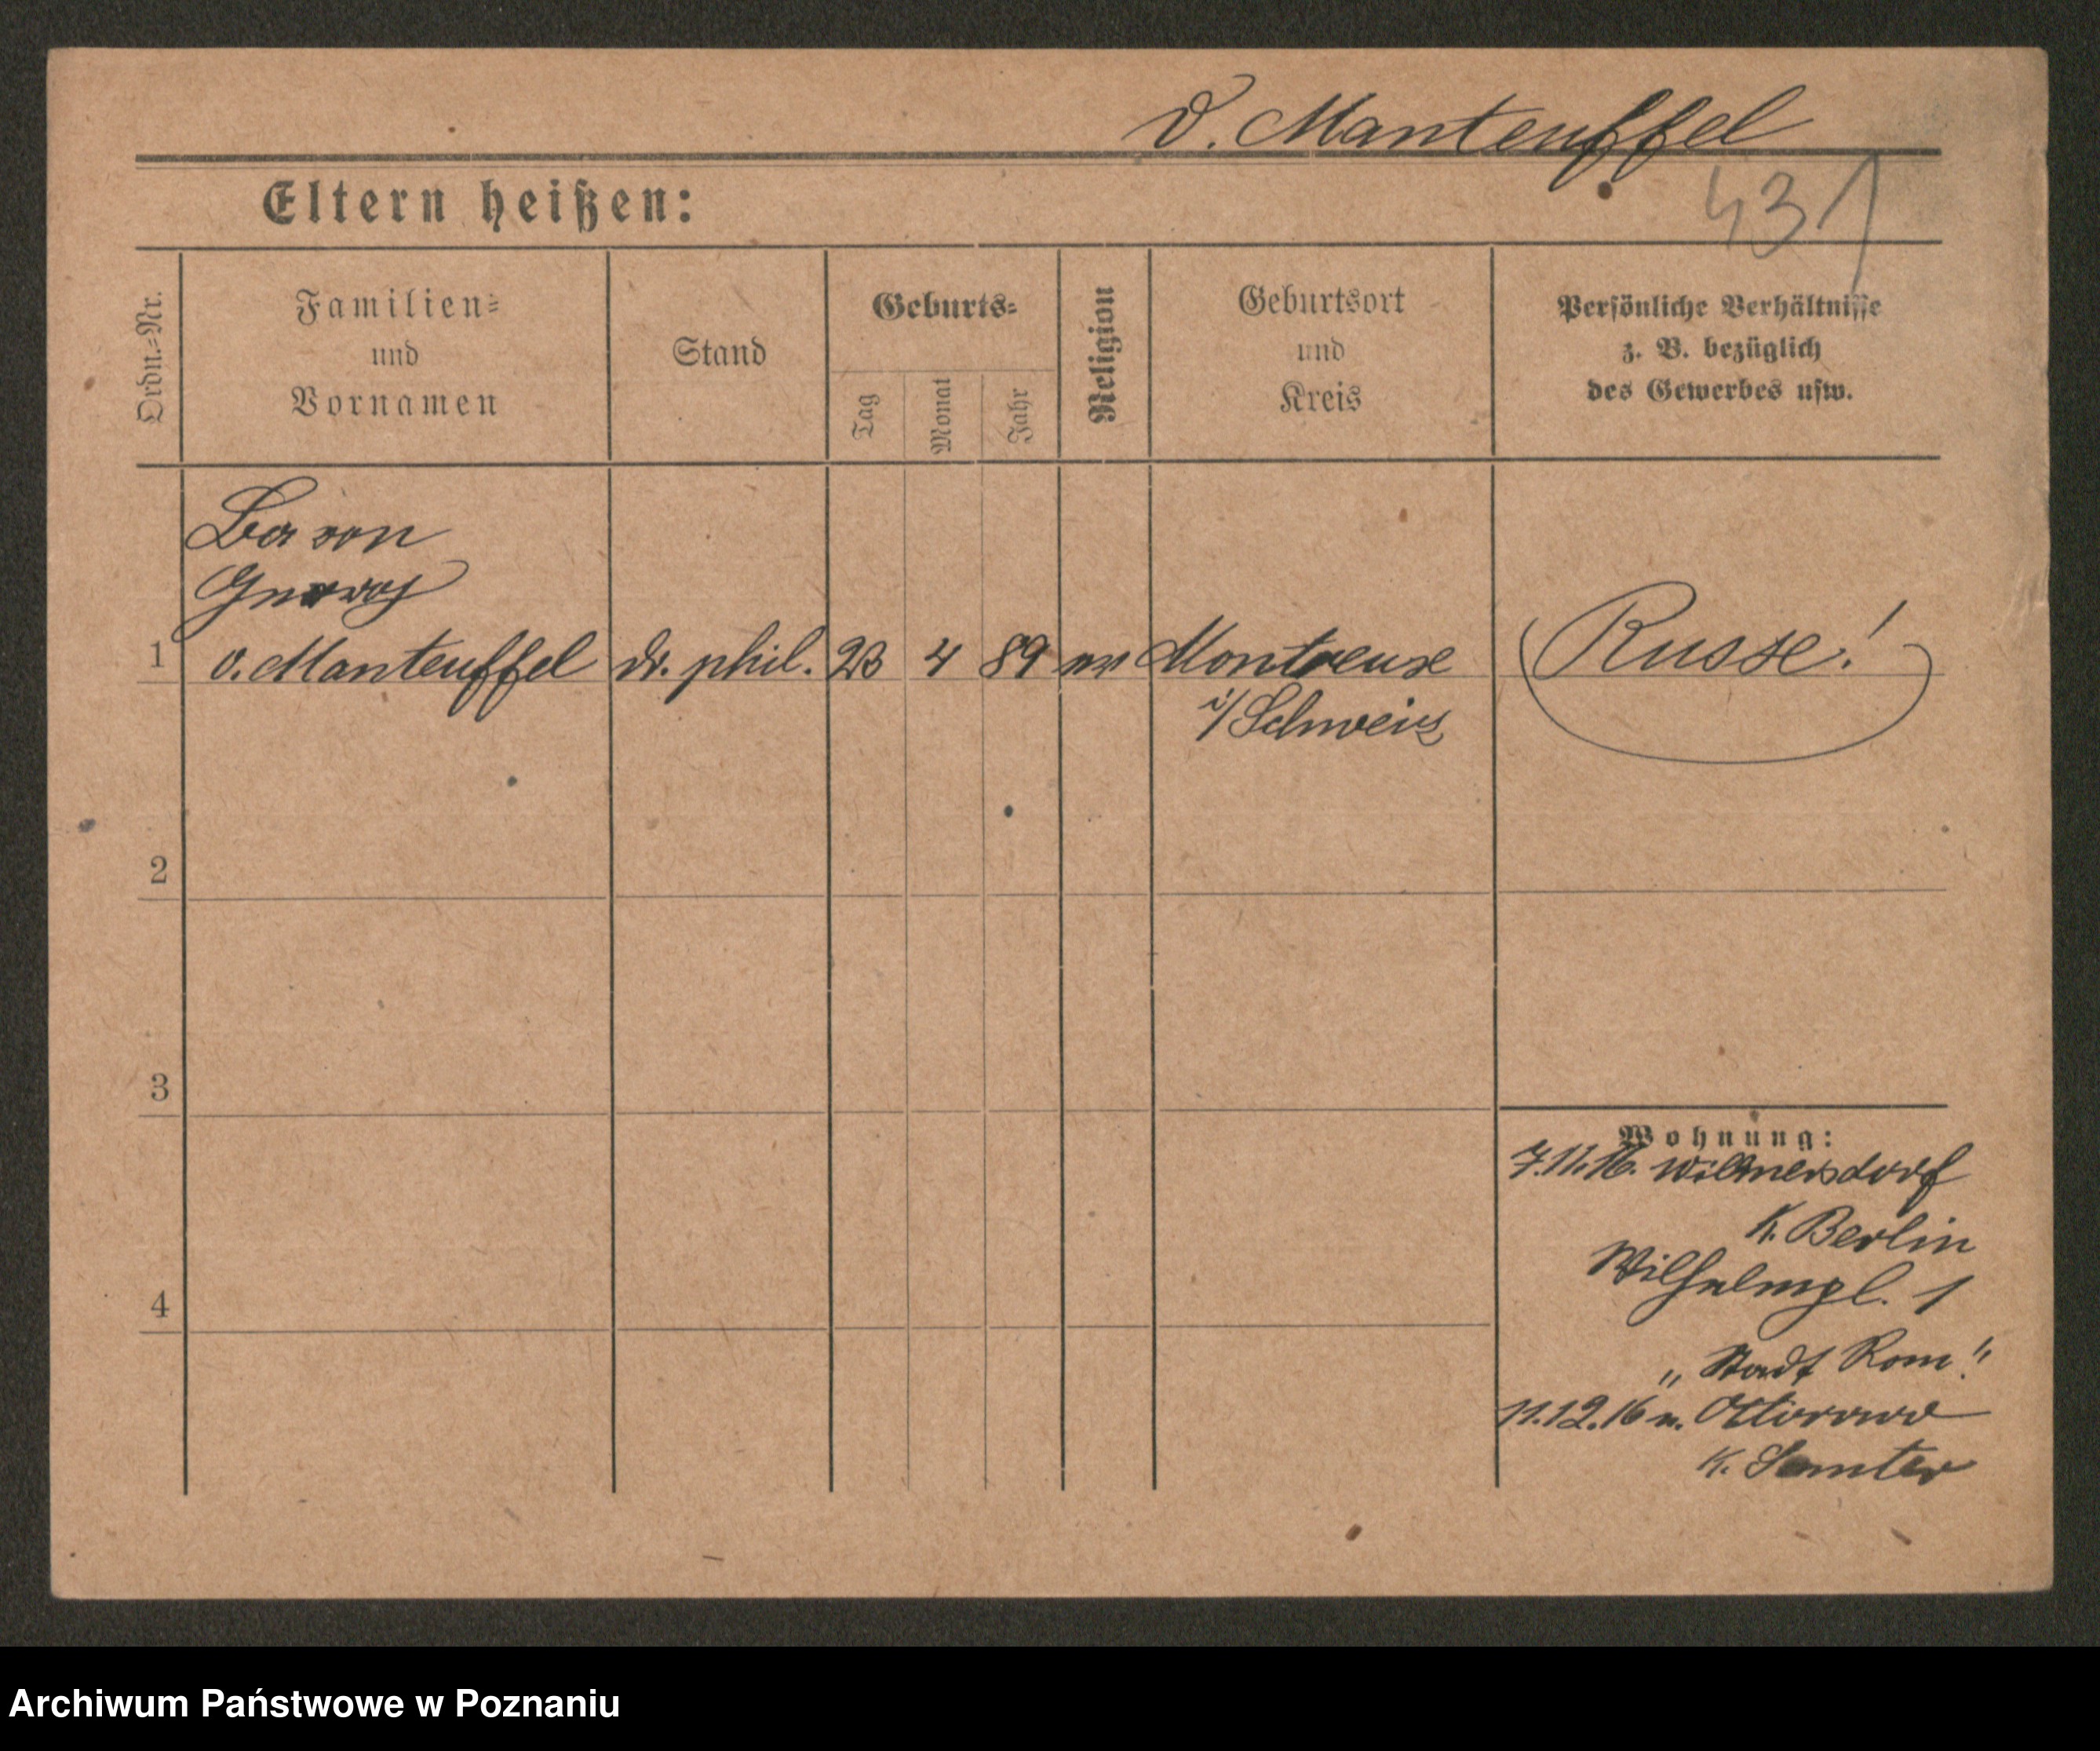 v. Manteuffel
431
Eltern heißen:
Ordn.=Nr.
Familien=
und
Vornamen
Stand
Geburts=
Tag
Monat
Jahr
Religion
Geburtsort
und
Kreis
Persönliche Verhältnisse
z. B. bezüglich
des Gewerbes usw.
Baron
1 v. Manteuffel dr. phil. 23 4 89 Montreux Russe!
i/Schweiz
2
3
4
Wohnung:
7.11.16. Wilmersdorf
K. Berlin
Wilhelmpl. 1
„Stadt Rom".
11.12.16 n. Ottorowo
K. Samter
Archiwum Państwowe w Poznaniu